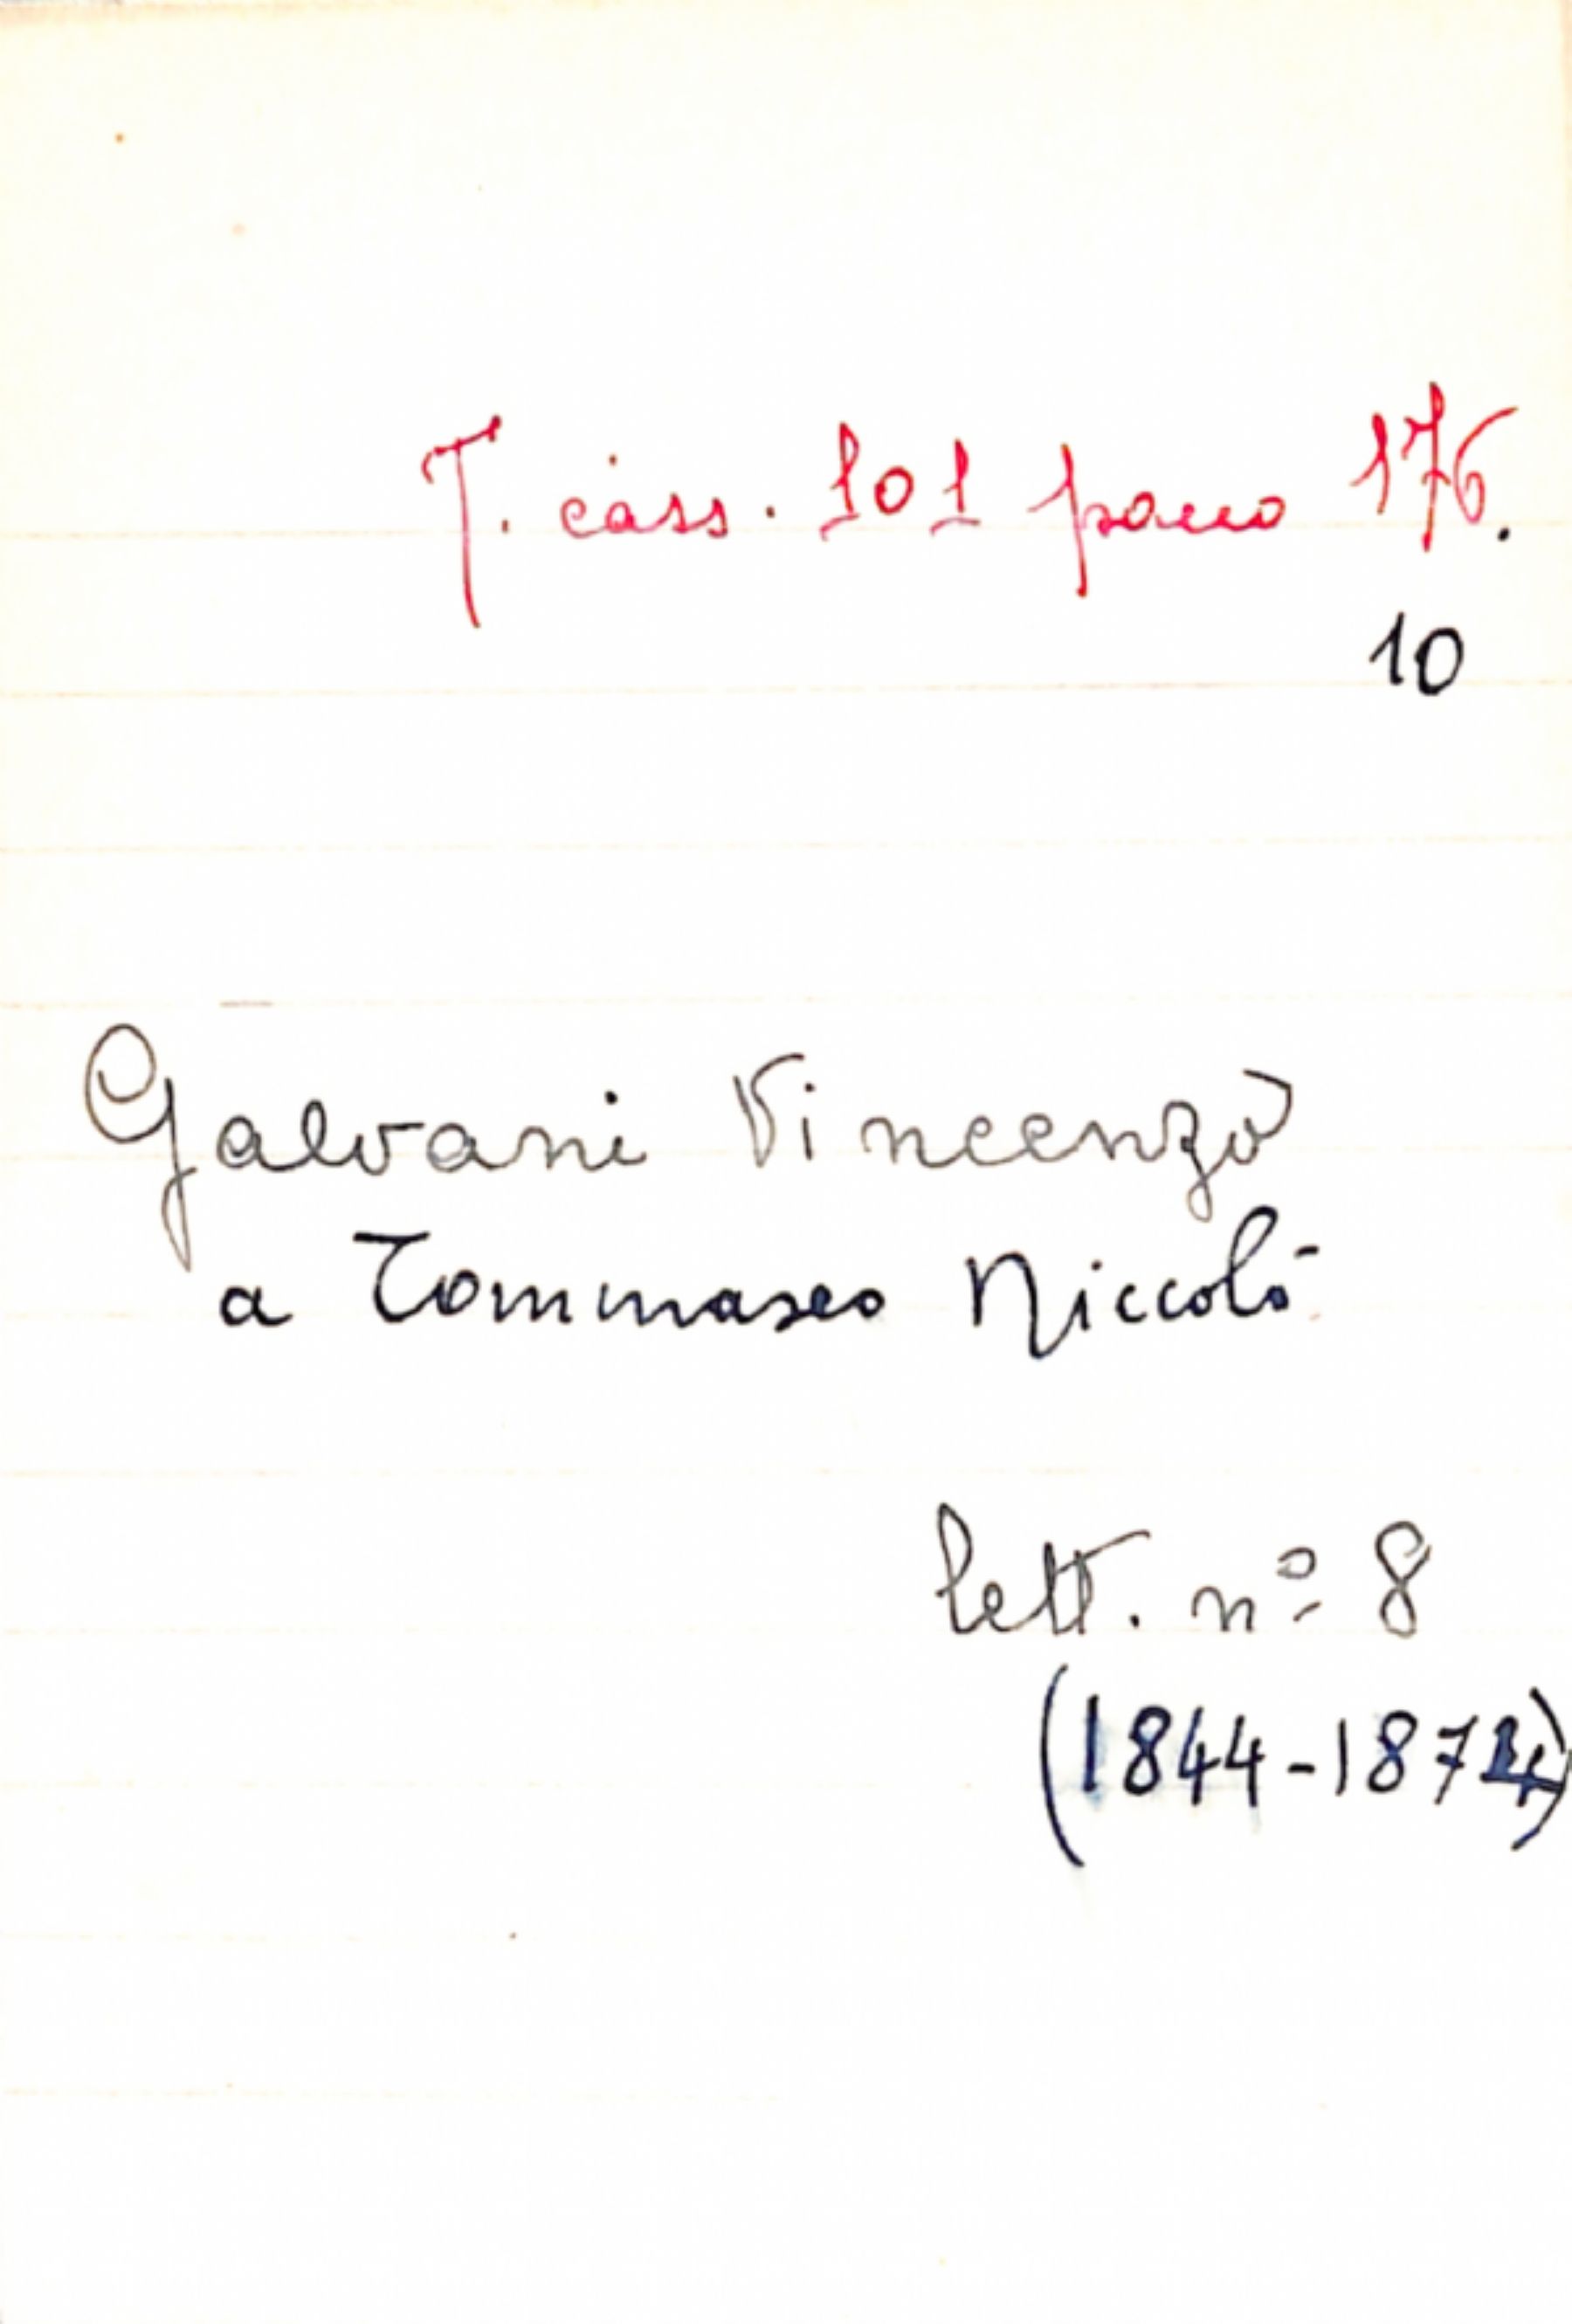 T. cass. 101 panno 176.
10
Galvani Vincenzo
a Tommaseo Niccolò
lett. nº 8
(1844-1874)